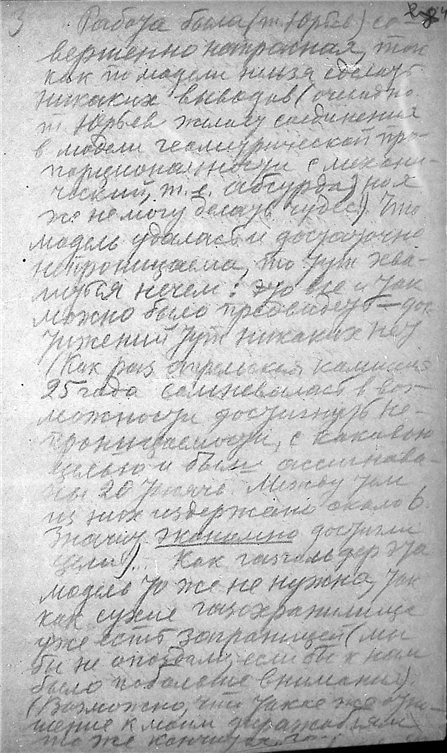 3
Работа была (т. Юрьев) со-
вершенно напрасная, так
как по модели нельзя сделать
никаких выводов (очевидно
т. Юрьев желает соединения
в модели геометрической про-
порциональности с механи-
ческой, т. е. абсурда) но я
же не могу делать чудес). Что
модель удалась и достаточно
непроницаема, то тут хва-
литься нечем: это ее и так
можно было предвидеть – дос-
тижений тут никаких нет
(Как раз апрельская комиссия
25 года сомневалась в воз-
можности достигнуть не-
проницаемости, с каковою
целью и были ассигнова-
ны 20 тысяч. Между тем
из них издержано около 6
значит экономно достигли
цели)... Как газгольдер эта
модель то же не нужна, так
как сухие газохранилища
уже есть заграницей (мы
бы не опоздали, если бы к нам
было поболее внимания).
(Возможно, что такое же отно-
шение к моим дирижаблям
то же